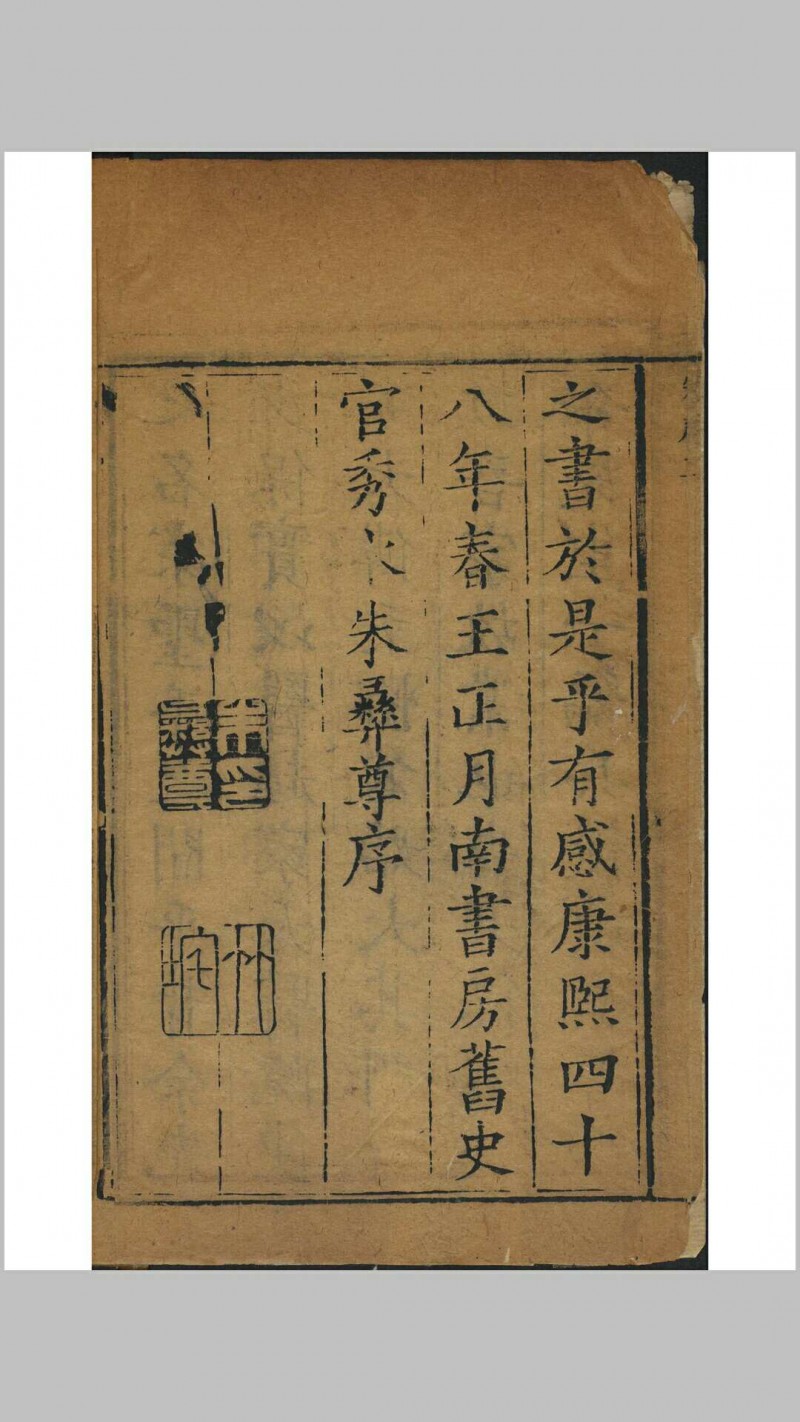 之書於是乎有感康熙四十
八年春王正月南書房舊史
官秀水朱彝尊序
朱彝尊印
竹垞